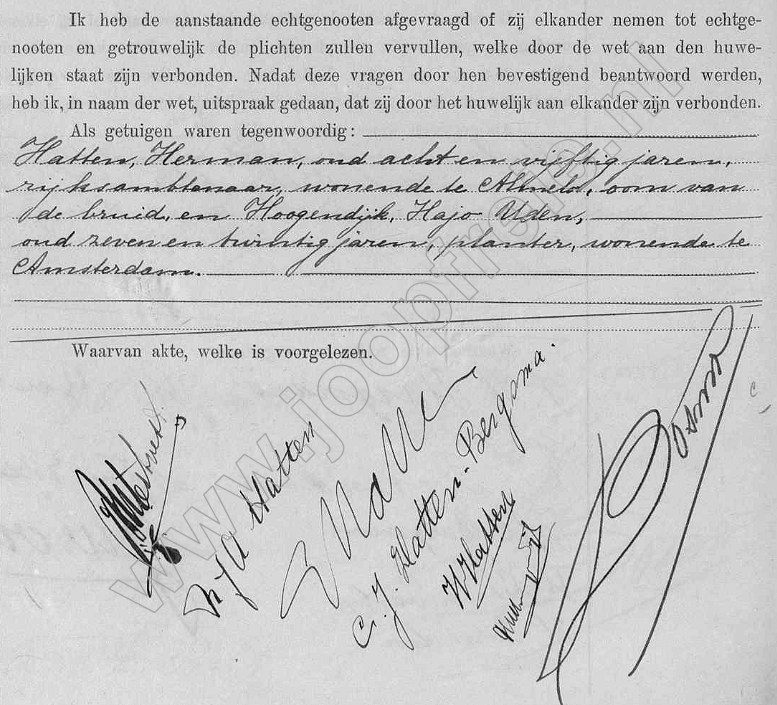 Ik heb de aanstaande echtgenooten afgevraagd of zij elkander nemen tot echtge-
nooten en getrouwelijk de plichten zullen vervullen, welke door de wet aan den huwe-
lijken staat zijn verbonden. Nadat deze vragen door hen bevestigend beantwoord werden,
heb ik, in naam der wet, uitspraak gedaan, dat zij door het huwelijk aan elkander zijn verbonden.
Als getuigen waren tegenwoordig:
Hatten, Herman, oud acht en vijftig jaren,
rijksambtenaar, wonende te Almelo, oom van
de bruid, en Hoogendijk, Hajo Uden,
oud zeven en twintig jaren, planter, wonende te
Amsterdam.
Waarvan akte, welke is voorgelezen.
Hatten
C. J. Hatten-Bergsma.
H Hatten
www.joopfrerq.nl